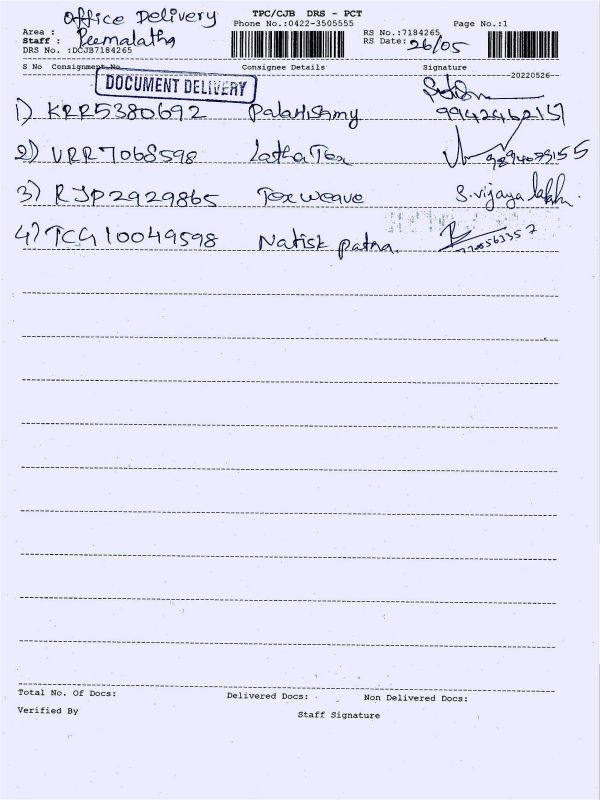 Office Delivery
TPC/CJB DRS - PCT
Phone No.:0422-3505555
Page No.:1
Area :
Staff : Peemalatha
DRS No. :DCJB7184265
RS No.:7184265
RS Date: 26/05
S No Consignment No
Consignee Details
Signature
20220526
DOCUMENT DELIVERY
1) KRR5380692 Palanishmy 9942462151
2) VRR7068598 Latha Tex
3) RJP2929865 Tex weave S.vijaya
4) TCG10049598 Natisk patra.
Total No. Of Docs:
Delivered Docs:
Non Delivered Docs:
Verified By
Staff Signature